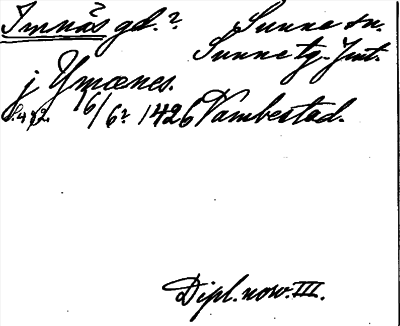 Imnäs gd.? Sunne sn.
Sunne tg. Jmt.
j Ymænes.
S. 472. 16/6? 1426 Vambestad.
Dipl. norv. III.